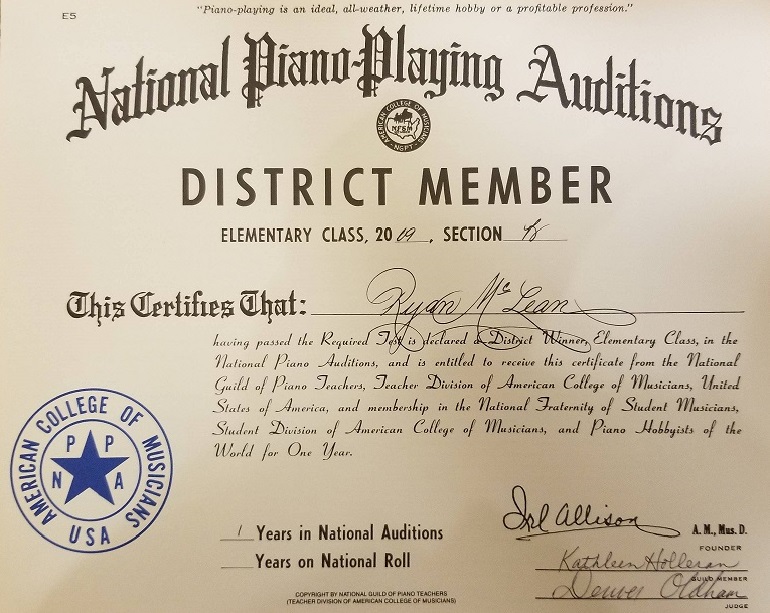 "Piano-playing is an ideal, all-weather, lifetime hobby or a profitable profession."
E5
National Piano-Playing Auditions
AMERICAN COLLEGE OF MUSICIANS
NFSM
NGPT
DISTRICT MEMBER
ELEMENTARY CLASS, 2019, SECTION
This Certifies That: Ryan McLean
having passed the Required Test is declared a District Winner, Elementary Class, in the
National Piano Auditions, and is entitled to receive this certificate from the National
Guild of Piano Teachers, Teacher Division of American College of Musicians, United
States of America, and membership in the National Fraternity of Student Musicians,
Student Division of American College of Musicians, and Piano Hobbyists of the
World for One Year.
AMERICAN COLLEGE OF MUSICIANS
P P
N A
USA
1 Years in National Auditions
Years on National Roll
Irl Allison A. M., Mus. D.
FOUNDER
Kathleen Holleran
GUILD MEMBER
Denver Oldham
JUDGE
COPYRIGHT BY NATIONAL GUILD OF PIANO TEACHERS
(TEACHER DIVISION OF AMERICAN COLLEGE OF MUSICIANS)